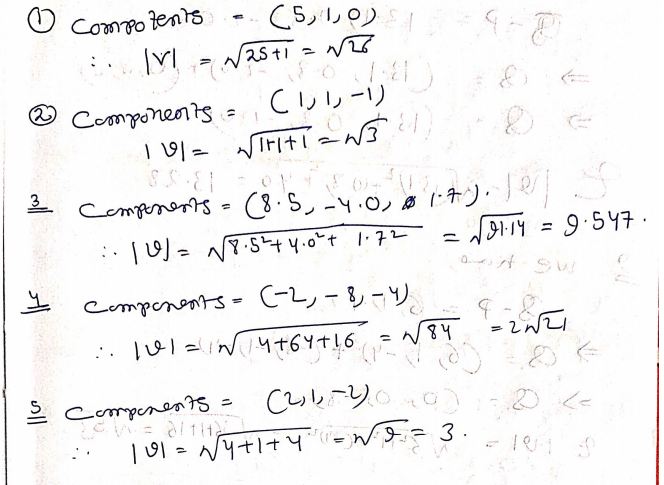 ① Components = (5, 1, 0)
∴ |V| = √25+1 = √26
② Components = (1, 1, -1)
|v| = √1+1+1 = √3
3 Components = (8.5, -4.0, 1.7).
∴ |v| = √8.5²+4.0²+ 1.7² = √91.14 = 9.547.
4 Components = (-2, -8, -4)
∴ |v| = √4+64+16 = √84 = 2√21
5 Components = (2, 1, -2)
∴ |v| = √4+1+4 = √9 = 3.